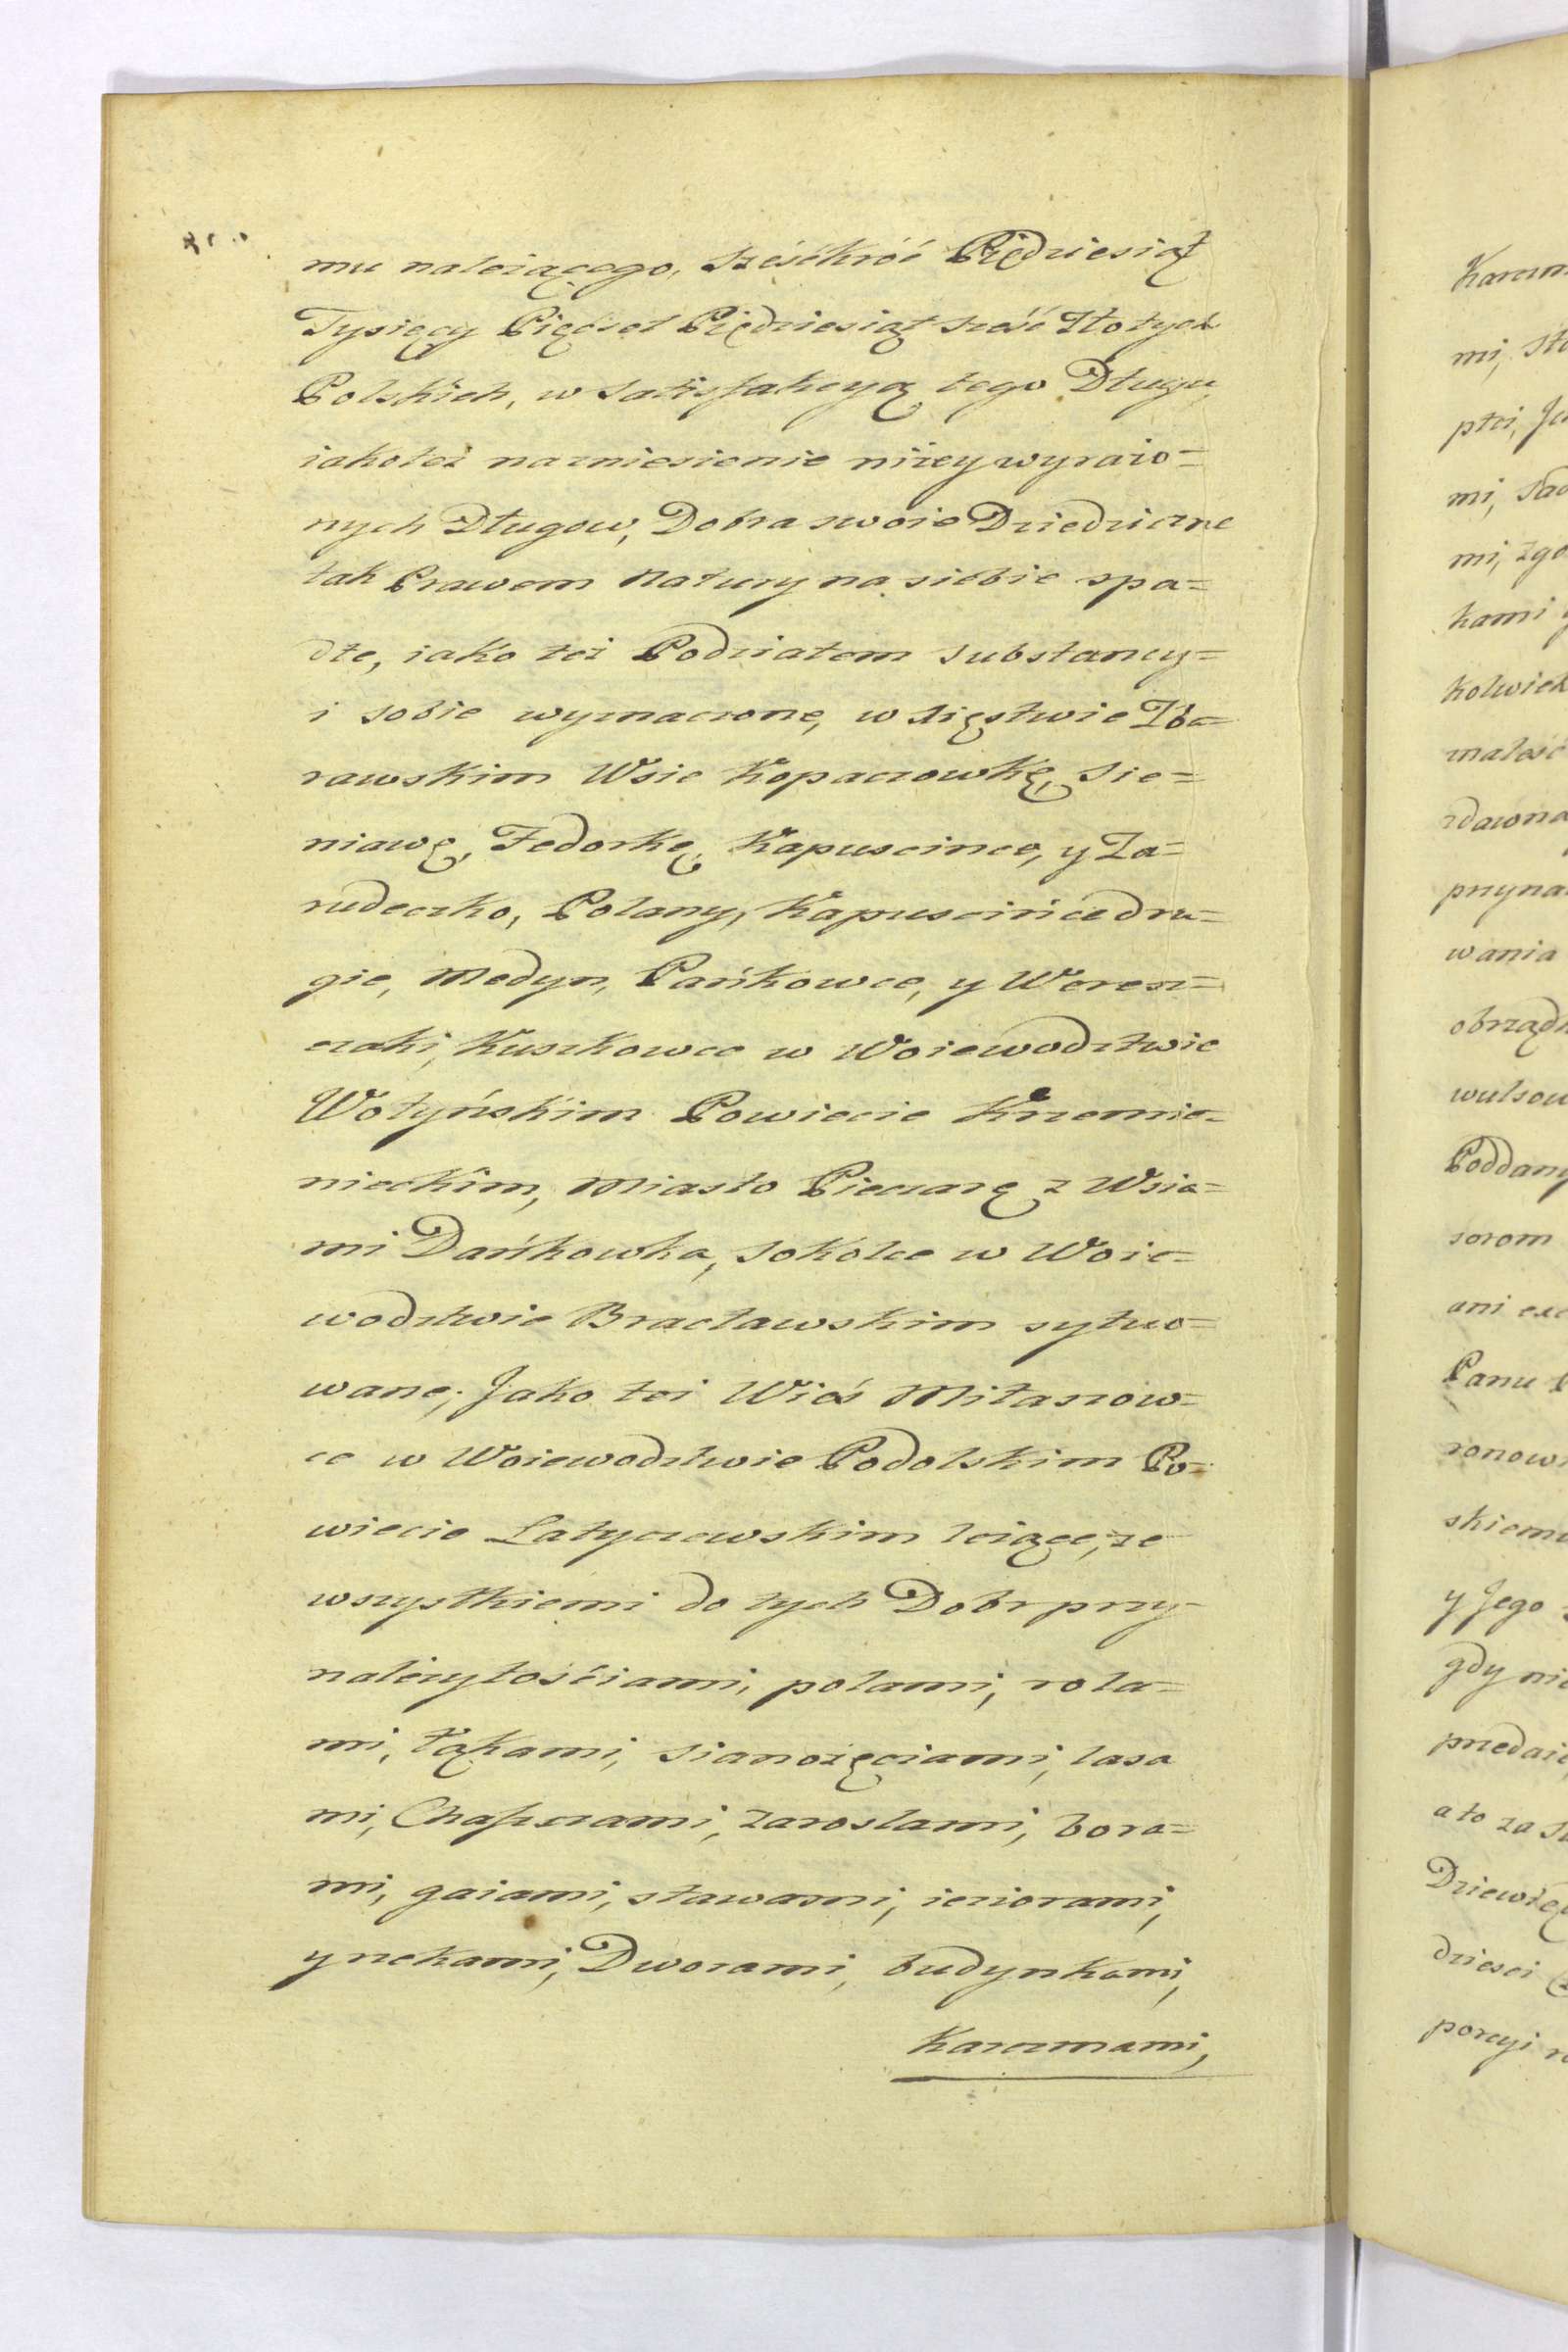 mu należącego, Sześćkróć Piędziesiąt
Tysięcy Pięćset Piędziesiąt sześć Złotych
Polskich, w Satisfakcyą tego Długu,
iakoteż na zniesienie niżey wyrażo=
nych Długow, Dobra swoie Dziedziczne
tak Prawem Natury na siebie spa=
dłe, iako też Podziałem Substancy=
i sobie wyznaczone, w Xięstwie Zba=
rawskim Wsie Kopaczowkę, Sie=
niawę, Fedorkę, Kapuscince, y Za=
rudeczko, Polany, Kapuscińce dru=
gie, Medyn, Pańkowce, y Weresz=
czaki, Kuszkowce w Woiewodztwie
Wołyńskim Powiecie Krzemie=
nieckim, Miasto Pieczarę z Wsia=
mi Dańkowka, Sokolce w Woie=
wodztwie Bracławskim sytuo=
wane; Jako też Wieś Mitaszow=
ce w Woiewodztwie Podolskim Po=
wiecie Latyczewskim leżące, ze
wszystkiemi do tych Dobr przy=
należytościami, polami, rola=
mi, łąkami, sianożęciami, lasa
mi, Chaszczami, zaroslami, bora=
mi, gaiami, stawami, ieziorami,
y rzekami, Dworami, budynkami,
Karczmami,
Karczm
mi, Sta
płci,
mi, Sad
mi, zgo
kami y
kolwiek
małość
zdawna
przyna
wania
obrząd
wulsow
Poddany
sorom
ani exc
Panu
ronow
skiemu
y Jego
gdy nie
przedaie
a to za Su
Dziewię
dziesci
porcyi